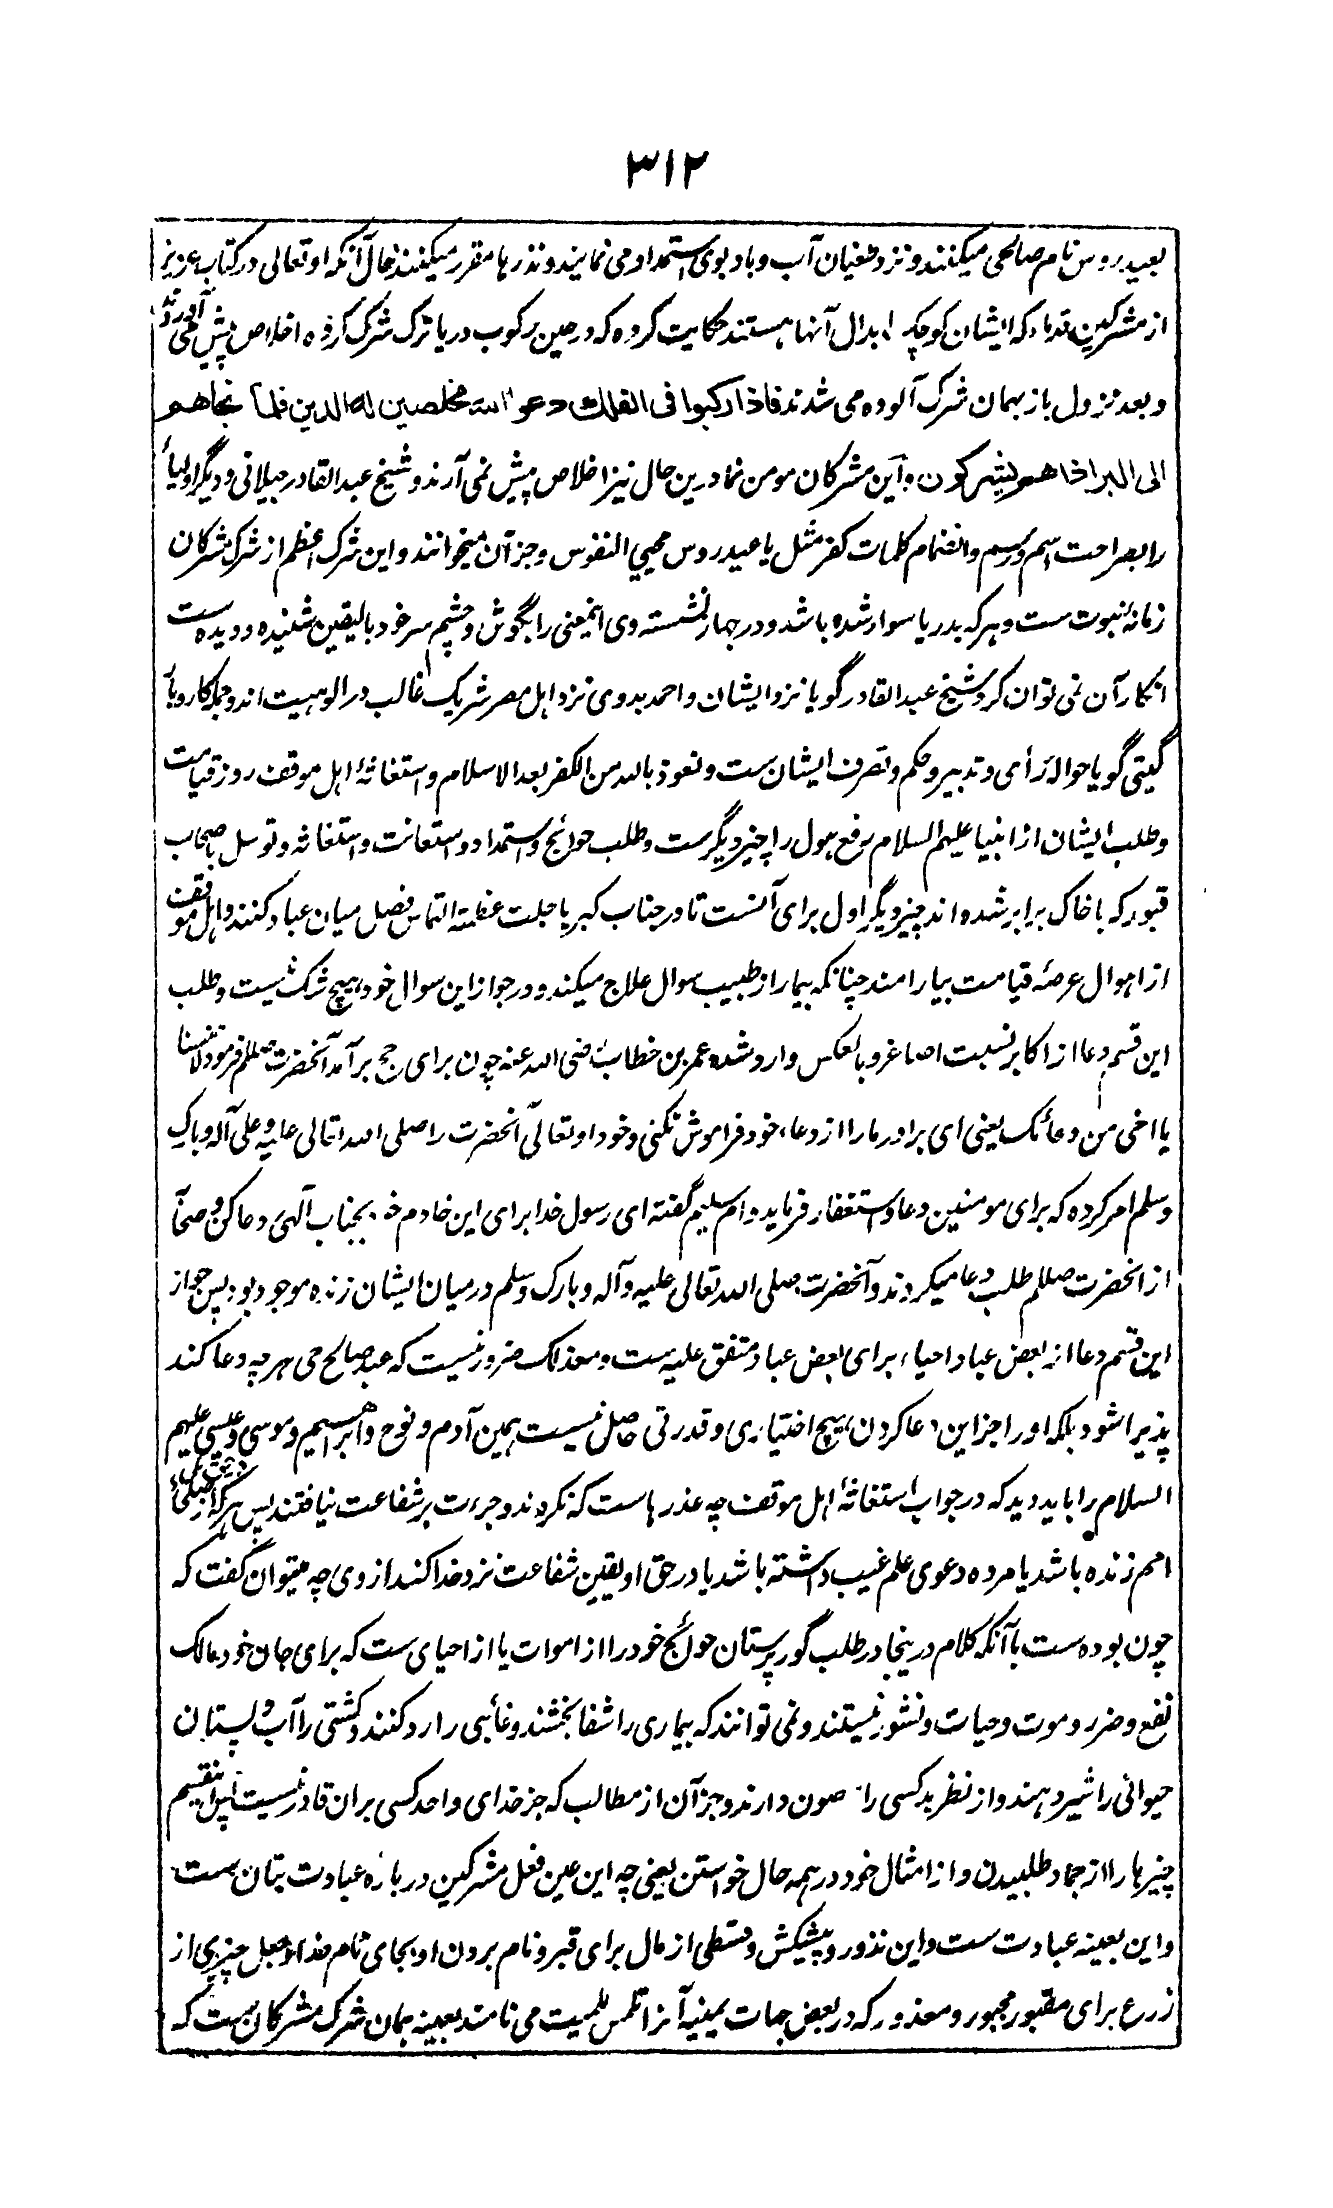 ۳۱۲
بعیدروس نام صالحی میکنند و نزد طغیان آب و باد بوی استمداد می نمایند و نذرها مقرر میکنند حال آنکه او تعالی در کتاب عزیز
از مشرکین قدماء که ایشان کوچک ابدال آنها هستند حکایت کرده که در حین رکوب دریا ترک شرک کرده اخلاص پیش می آوردند
و بعد نزول باز بهمان شرک آلوده می شدند فاذا رکبوا فی الفلک دعوا الله مخلصین له الدین فلما نجاهم
الی البر اذا هم یشرکون و این مشرکان مومن نما درین حال نیز اخلاص پیش نمی آرند و شیخ عبد القادر جیلانی و دیگر اولیا
را بصراحت اسم و رسم و انضمام کلمات کفر مثل یا عیدروس محیی النفوس و جز آن میخوانند و این شرک اعظم از شرک مشرکان
زمانهٔ نبوت ست و هر که بدریا سوار شده باشد و در جهاز نشسته وی اینمعنی را بگوش و چشم سر خود بالیقین شنیده و دیده ست
انکار آن نمی توان کرد شیخ عبد القادر گویا نزد ایشان و احمد بدوی نزد اهل مصر شریک غالب در الوهیت اند و جمله کاروبار
گیتی گویا حواله رأی و تدبیر و حکم و تصرف ایشان ست و نعوذ بالله من الکفر بعد الاسلام و استغاثهٔ اهل موقف روز قیامت
و طلب ایشان از انبیا علیهم السلام رفع هول را چیز دیگرست و طلب حوائج و استمداد و استعانت و استغاثه و توسل باصحاب
قبور که با خاک برابر شده اند چیز دیگر اول برای آنست تا در جناب کبریا جلت عظمته التماس فصل میان عباد کنند و اهل موقف
از اهوال عرصهٔ قیامت بیارامند چنانکه بیمار از طبیب سوال علاج میکند و در جواز این سوال خود هیچ شک نیست و طلب
این قسم دعا از اکابر نسبت اصاغر و بالعکس وارد شده عمر بن خطاب رضی الله عنه چون برای حج برآمد آنحضرت صللم فرمود لا تنسنا
یا اخی من دعائک یعنی ای برادر ما را از دعاء خود فراموش نکنی و خود او تعالی آنحضرت را صلی الله تعالی علیه و علی آله و بارک
و سلم امر کرده که برای مومنین دعا و استغفار فرماید و ام سلیم گفته ای رسول خدا برای این خادم خود بجناب الهی دعا کن و صحابه
از آنحضرت صللم طلب دعا میکردند و آنحضرت صلی الله تعالی علیه و آله و بارک و سلم در میان ایشان زنده موجود بود پس جواز
این قسم دعا از بعض عباد احیاء برای بعض عباد متفق علیه ست و معذلک ضرور نیست که عبد صالح حی هر چه دعا کند
پذیرا شود بلکه او را جز این دعا کردن هیچ اختیاری و قدرتی حاصل نیست همین آدم و نوح و ابراهیم و موسی و عیسی علیهم
السلام را باید دید که در جواب استغاثهٔ اهل موقف چه عذرهاست که نکردند و جرءت بر شفاعت نیافتند پس هر که از صلحای
امم زنده باشد یا مرده دعوی علم غیب داشته باشد یا در حق او یقین شفاعت نزد خدا کند از وی چه میتوان گفت که
چون بوده ست با آنکه کلام درینجا در طلب گور پرستان حوائج خود را از اموات یا از احیای ست که برای جان خود مالک
نفع و ضرر و موت و حیات و نشور نیستند و نمی توانند که بیماری را شفا بخشند و غائبی را رد کنند و کشتی را آب و پستان
حیوانی را شیر دهند و از نظر بد کسی را مصون دارند و جز آن از مطالب که جز خدای واحد کسی بران قادر نیست پس اینقسیم
چیزها را از جماد طلبیدن و از امثال خود در همه حال خواستن یعنی چه این عین فعل مشرکین در باره عبادت بتان ست
و این بعینه عبادت ست و این نذور و پیشکش و قسطی از مال برای قبر و نام بردن او بجای نام خدا و جعل چیزی از
زرع برای مقبور مجبور و معذور که در بعض جهات یمنیه آنرا تلمس للمیت می نامند بعینه همان شرک مشرکان ست که